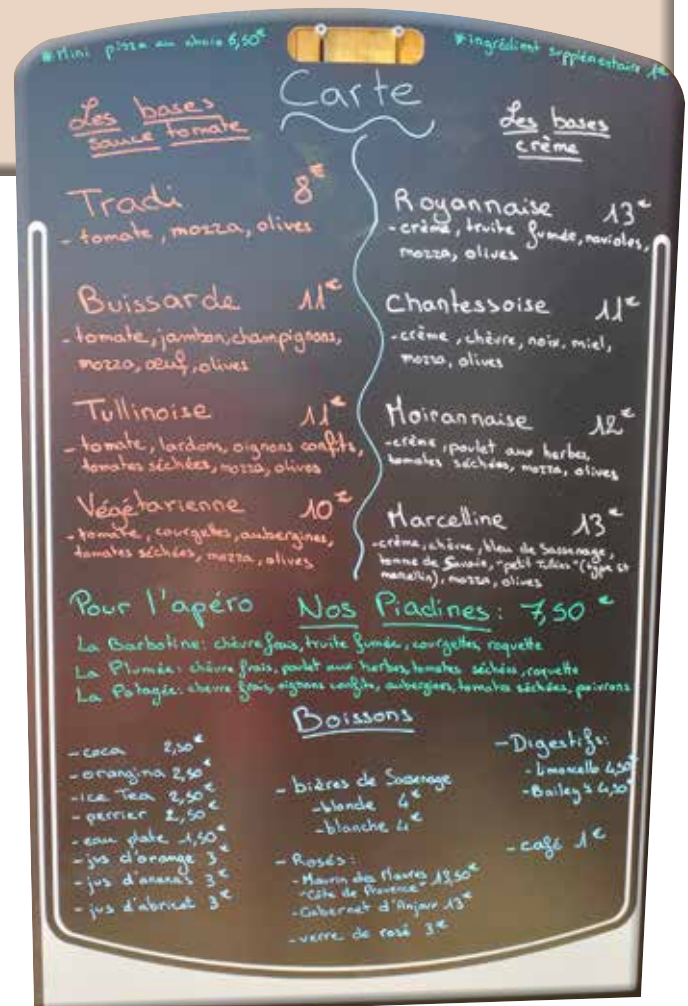 *Mini pizza au choix 6,50€
*ingrédient supplémentaire 1€
Carte
Les bases
sauce tomate
Tradi 8€
- tomate, mozza, olives
Buissarde 11€
- tomate, jambon, champignons,
mozza, œuf, olives
Tullinoise 11€
- tomate, lardons, oignons confits,
tomates séchées, mozza, olives
Végétarienne 10€
- tomate, courgettes, aubergines,
tomates séchées, mozza, olives
Les bases
crème
Royannaise 13€
- crème, truite fumée, ravioles,
mozza, olives
Chantessoise 11€
- crème, chèvre, noix, miel,
mozza, olives
Moirannaise 12€
- crème, poulet aux herbes,
tomates séchées, mozza, olives
Marcelline 13€
- crème, chèvre, bleu de Sassenage,
tomme de Savoie, "petit Tullins" (type st
marcellin), mozza, olives
Pour l'apéro Nos Piadines : 7,50€
La Barbotine : chèvre frais, truite fumée, courgettes, roquette
La Plumée : chèvre frais, poulet aux herbes, tomates séchées, roquette
La Potagée : chèvre frais, oignons confits, aubergines, tomates séchées, poivrons
Boissons
- coca 2,50€
- orangina 2,50€
- ice Tea 2,50€
- perrier 2,50€
- eau plate 1,50€
- jus d'orange 3€
- jus d'ananas 3€
- jus d'abricot 3€
- bières de Sassenage
- blonde 4€
- blanche 4€
- Rosés :
- Maurin des Maures 13,50€
"Côte de Provence"
- Cabernet d'Anjou 13€
- verre de rosé 3€
- Digestifs :
- Limoncello 4,50€
- Bailey's 4,50€
- café 1€